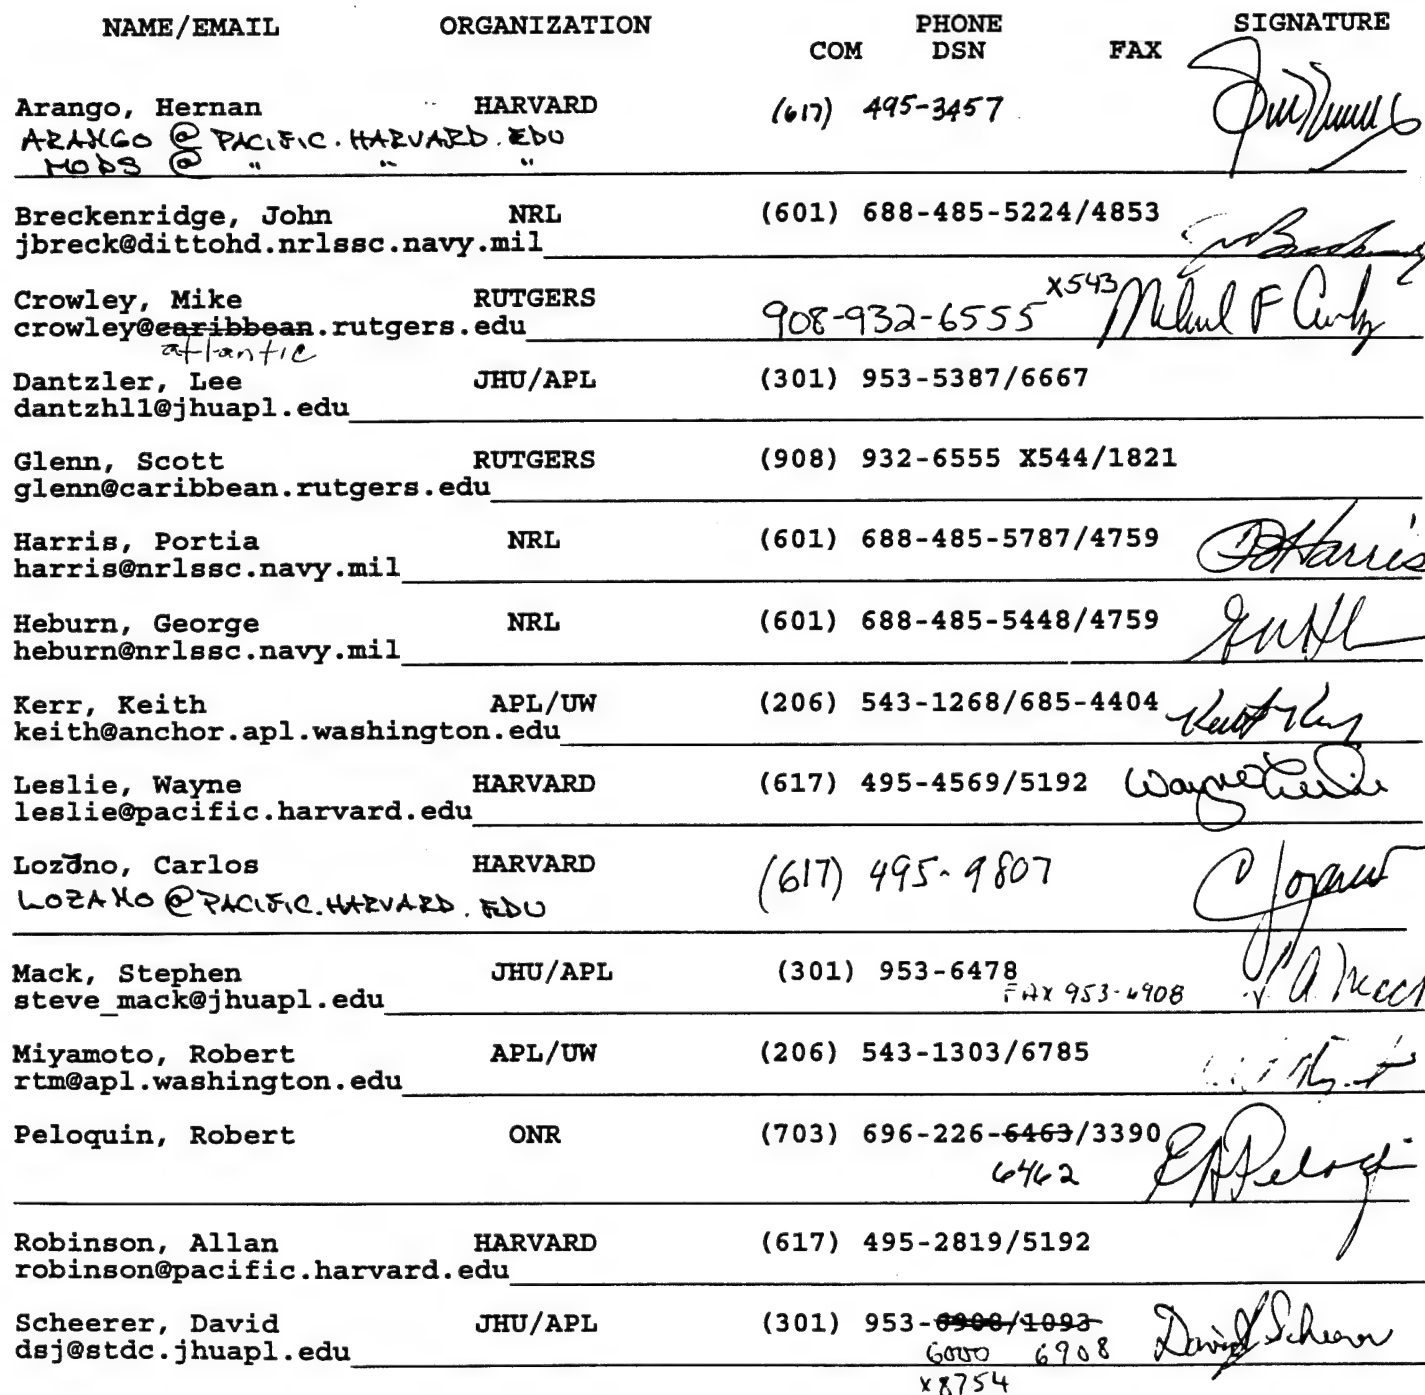 NAME/EMAIL ORGANIZATION PHONE SIGNATURE
COM DSN FAX
Arango, Hernan HARVARD (617) 495-3457
ARANGO @ PACIFIC.HARVARD.EDU
MODS @ " " "
Breckenridge, John NRL (601) 688-485-5224/4853
jbreck@dittohd.nrlssc.navy.mil
Crowley, Mike RUTGERS 908-932-6555 x543
crowley@caribbean.rutgers.edu
atlantic
Dantzler, Lee JHU/APL (301) 953-5387/6667
dantzhl1@jhuapl.edu
Glenn, Scott RUTGERS (908) 932-6555 X544/1821
glenn@caribbean.rutgers.edu
Harris, Portia NRL (601) 688-485-5787/4759 Harris
harris@nrlssc.navy.mil
Heburn, George NRL (601) 688-485-5448/4759
heburn@nrlssc.navy.mil
Kerr, Keith APL/UW (206) 543-1268/685-4404 Keith Kerr
keith@anchor.apl.washington.edu
Leslie, Wayne HARVARD (617) 495-4569/5192 Wayne Leslie
leslie@pacific.harvard.edu
Lozano, Carlos HARVARD (617) 495-9807 C Lozano
LOZANO @ PACIFIC.HARVARD.EDU
Mack, Stephen JHU/APL (301) 953-6478
steve_mack@jhuapl.edu FAX 953-6908
Miyamoto, Robert APL/UW (206) 543-1303/6785
rtm@apl.washington.edu
Peloquin, Robert ONR (703) 696-226-6463/3390
6462
Robinson, Allan HARVARD (617) 495-2819/5192
robinson@pacific.harvard.edu
Scheerer, David JHU/APL (301) 953-6908/1093 David Scheerer
dsj@stdc.jhuapl.edu 6000 6908
x8754